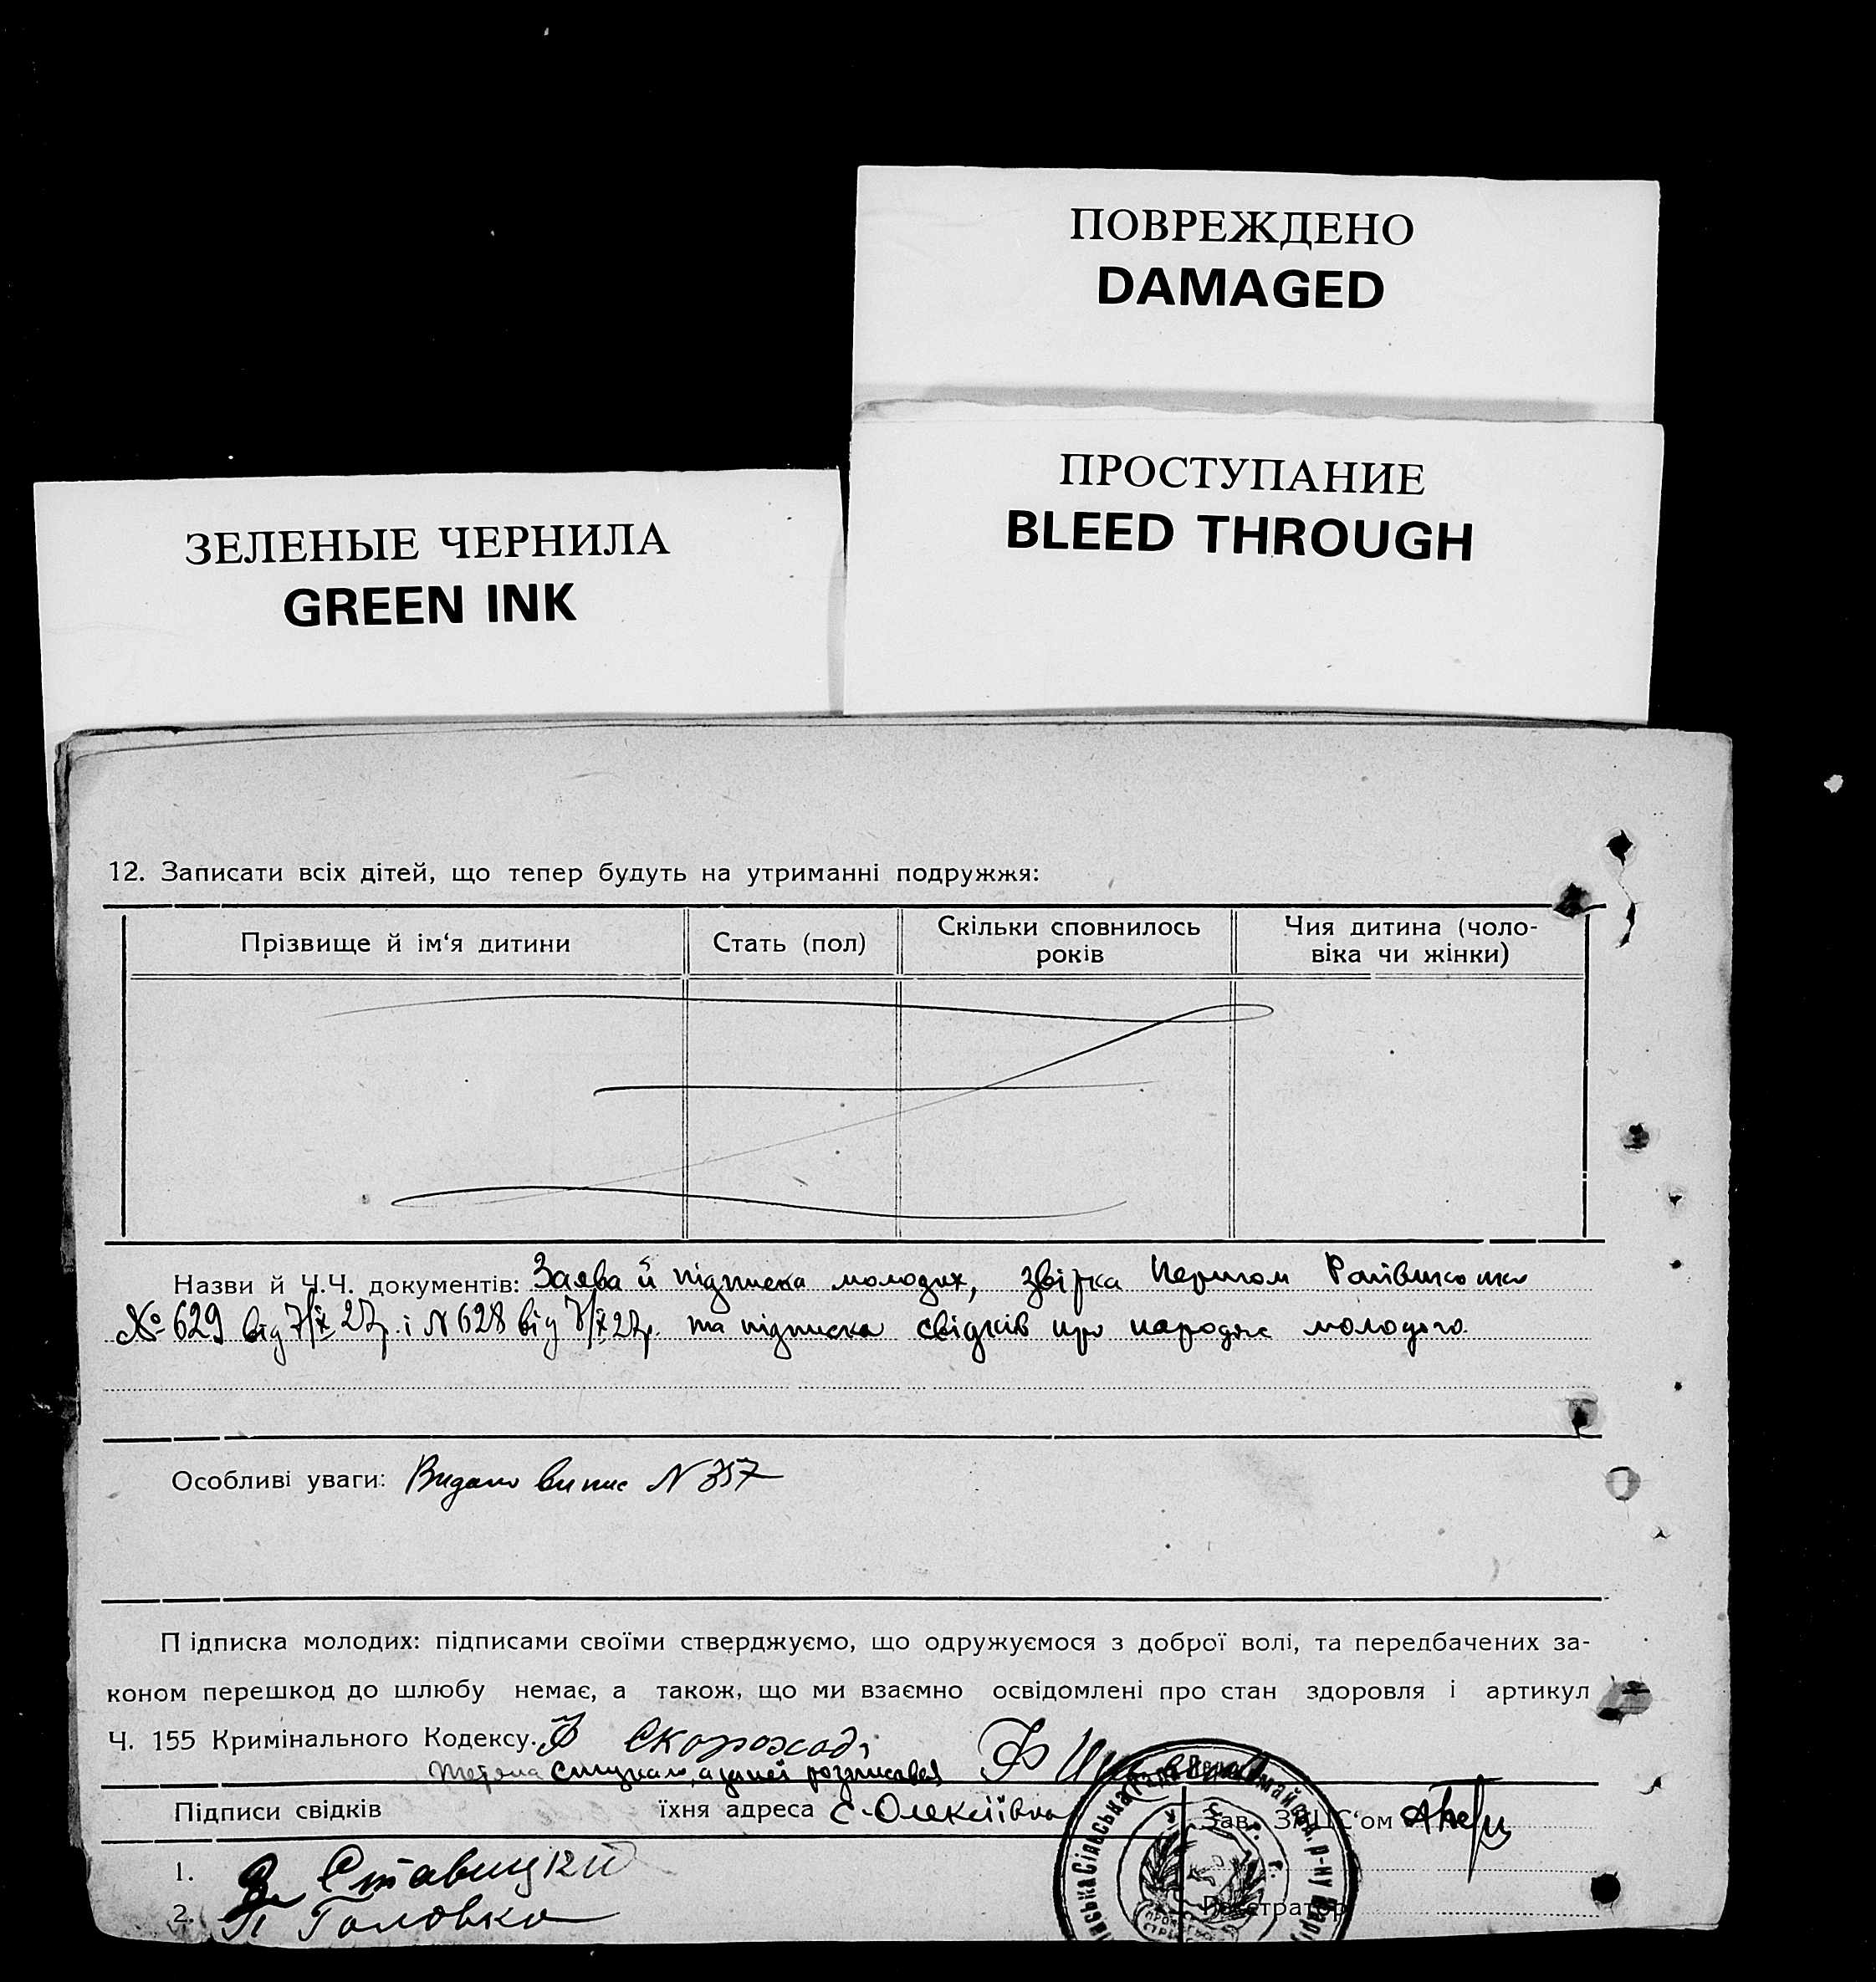 ПОВРЕЖДЕНО
DAMAGED
ПРОСТУПАНИЕ
BLEED THROUGH
ЗЕЛЕНЫЕ ЧЕРНИЛА
GREEN INK
12. Записати всіх дітей, що тепер будуть на утриманні подружжя:
Прізвище й ім‘я дитини
Стать (пол)
Скільки сповнилось
років
Чия дитина (чоло-
віка чи жінки)
Назви й Ч.Ч. документів: Заява й підписка молодих, звірка
№ 629 від 7/ІХ 27р. і N 628 від 7/ІХ 27р. та підписка свідків про народж молодого
Особливі уваги: Видано випис N 357
Підписка молодих: підписами своїми стверджуємо, що одружуємося з доброї волі, та передбачених за-
коном перешкод до шлюбу немає, а також, що ми взаємно освідомлені про стан здоровля і артикул
Ч. 155 Кримінального Кодексу. Скороход
розписався
Підписи свідків їхня адреса с. Олексіївка Зав. ЗАЦС‘ом
1. Ставицкий
2. П Головко
Реєстратор
Сільська Рада Первомайськ. р-ну
У. С. Р. Р.